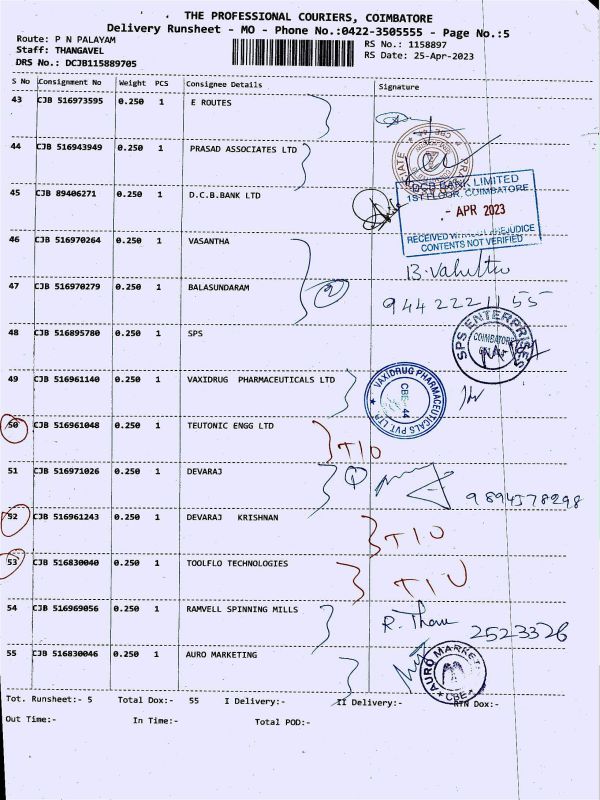 THE PROFESSIONAL COURIERS, COIMBATORE
Delivery Runsheet - MO - Phone No.:0422-3505555 - Page No.:5
Route: P N PALAYAM
Staff: THANGAVEL
DRS No.: DCJB115889705
RS No.: 1158897
RS Date: 25-Apr-2023
S No Consignment No Weight PCS Consignee Details Signature
43 CJB 516973595 0.250 1 E ROUTES
44 CJB 516943949 0.250 1 PRASAD ASSOCIATES LTD
45 CJB 89406271 0.250 1 D.C.B.BANK LTD
DCB BANK LIMITED
1ST FLOOR, COIMBATORE
- APR 2023
RECEIVED WITHOUT PREJUDICE
CONTENTS NOT VERIFIED
46 CJB 516970264 0.250 1 VASANTHA
47 CJB 516970279 0.250 1 BALASUNDARAM
2
9442221155
48 CJB 516895780 0.250 1 SPS
SPS ENTERPRISES
COIMBATORE
49 CJB 516961140 0.250 1 VAXIDRUG PHARMACEUTICALS LTD
VAXIDRUG PHARMACEUTICALS PVT. LTD
CBE-44
50 CJB 516961048 0.250 1 TEUTONIC ENGG LTD
TIO
51 CJB 516971026 0.250 1 DEVARAJ
1
9894578298
52 CJB 516961243 0.250 1 DEVARAJ KRISHNAN
TIO
53 CJB 516830040 0.250 1 TOOLFLO TECHNOLOGIES
TIO
54 CJB 516969056 0.250 1 RAMVELL SPINNING MILLS
2523326
55 CJB 516830046 0.250 1 AURO MARKETING
AURO MARKETING
CBE
Tot. Runsheet:- 5 Total Dox:- 55 I Delivery:- II Delivery:- RTN Dox:-
Out Time:- In Time:- Total POD:-